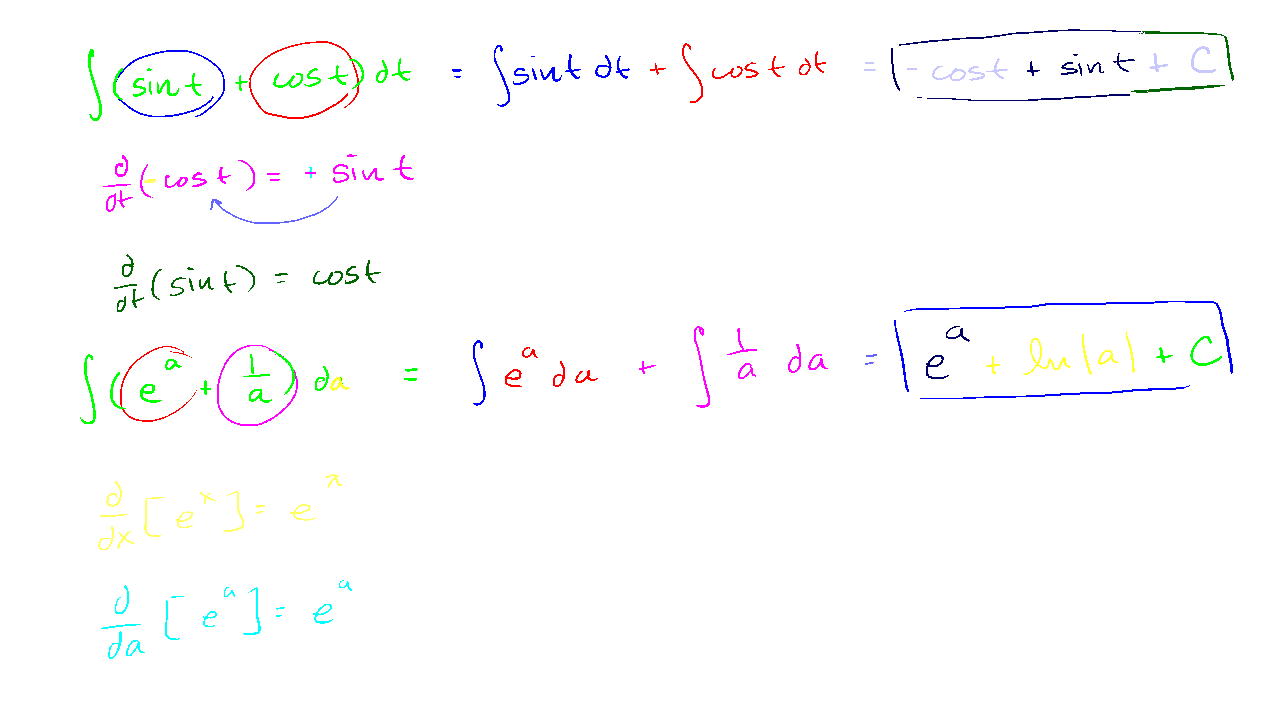 ∫(sin t + cos t) dt = ∫sin t dt + ∫cos t dt = - cos t + sin t + C
d/dt (- cos t) = + sin t
d/dt (sin t) = cos t
∫(e^a + 1/a) da = ∫ e^a da + ∫ 1/a da = e^a + ln|a| + C
d/dx [e^x] = e^x
d/da [e^a] = e^a